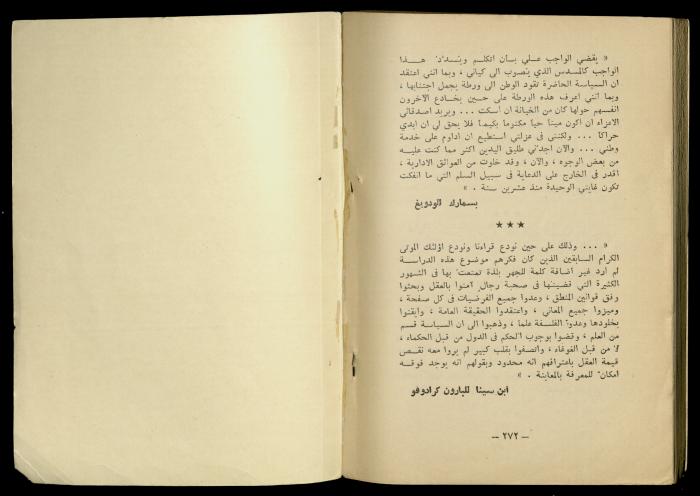 « يقضي الواجب علي بان اتكلم ويسدد هذا
الواجب كالمسدس الذي ينصوب الى كياني ، وبما انني اعتقد
ان السياسة الحاضرة تقود الوطن الى ورطة يجمل اجتنابها ،
وبما انني اعرف هذه الورطة على حسين يخادع الآخرون
انفسهم حولها كان من الخيانة ان اسكت ... ويريد اصدقائي
الاعزاء ان اكون ميتا حيا مكتوما بكيما فلا يحق لي ان ابدي
حراكا ... ولكنني في عزلتي استطيع ان اداوم على خدمة
وطني ... والآن اجدني طليق اليدين اكثر مما كنت عليه
من بعض الوجوه ، والآن ، وقد خلوت من العوائق الادارية ،
اقدر في الخارج على الدعاية في سبيل السلم التي ما انفكت
تكون غايتي الوحيدة منذ عشرين سنة . »
بسمارك لودويغ
★★★
« ... وذلك على حين نودع قراءنا ونودع اولئك الموتى
الكرام السابقين الذين كان فكرهم موضوع هذه الدراسة
لم ارد غير اضافة كلمة للجهر بلذة تمتعت بها في الشهور
الكثيرة التي قضيتها في صحبة رجال آمنوا بالعقل وبحثوا
وفق قوانين المنطق ، وعدوا جميع الفرضيات في كل صفحة ،
وميزوا جميع المعاني ، واعتقدوا الحقيقة العامة ، وايقنوا
بخلودها وعدوا الفلسفة علما ، وذهبوا الى ان السياسة قسم
من العلم ، وقضوا بوجوب الحكم في الدول من قبل الحكماء ،
لا من قبل الغوغاء ، واتصفوا بقلب كبير لم يروا معه نقص
قيمة العقل باعترافهم انه محدود وبقولهم انه يوجد فوقه
امكان للمعرفة بالمعاينة . »
ابن سينا للبارون كرادوفو
— ٢٧٢ —